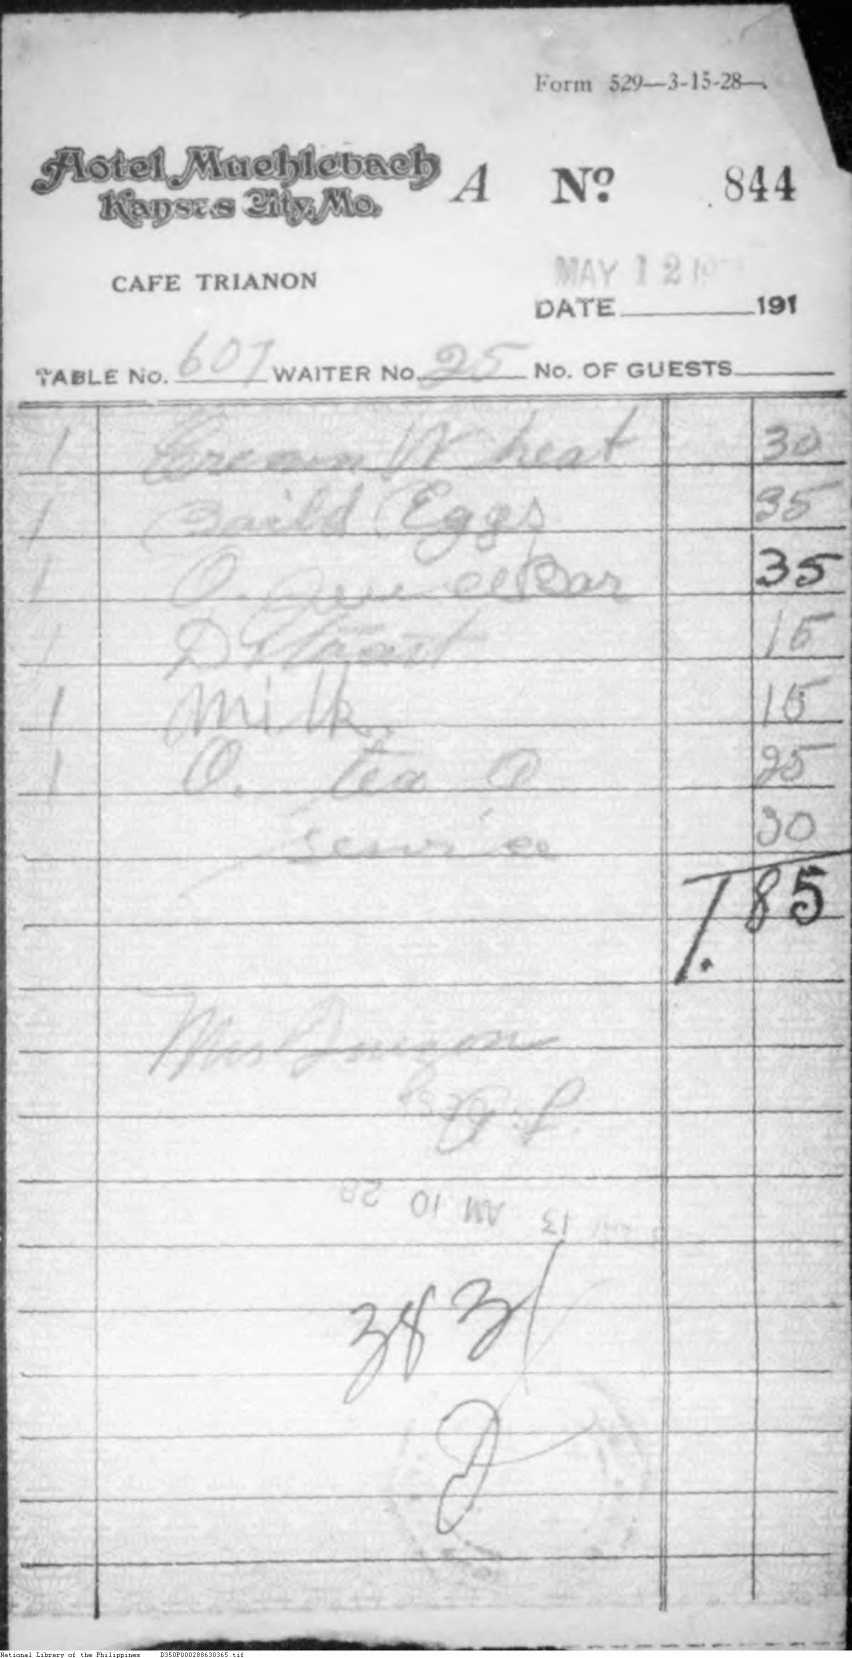 Form 529—3-15-28—
Hotel Muehlebach
Kansas City, Mo.
A No. 844
CAFE TRIANON
MAY 12
DATE 191
TABLE No. 607 WAITER No. 25 No. OF GUESTS
1 Cream Wheat 30
1 Boild Eggs 35
1 O. Juice 35
1 D Toast 15
1 Milk 15
1 O. tea 25
service 30
1.85
Mrs
13 AM 10 28
383
National Library of the Philippines D350P000288630365.tif